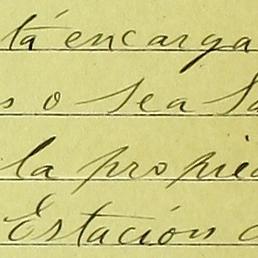 tá encarga
s o sea Sa
la propie
Estación